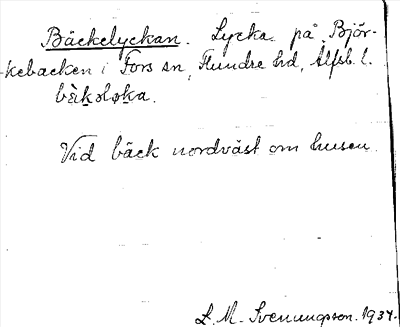 Bäckelyckan. Lycka på Björ-
kebacken i Fors sn, Flundre hd, Älfsb. l.
bäkəløka.
Vid bäck nordväst om husen.
L. M. Svenungsson. 1934.